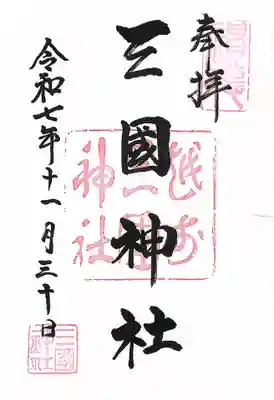 奉拝
三國神社
令和七年十一月三十日
越前
三国
神社
三國
神社